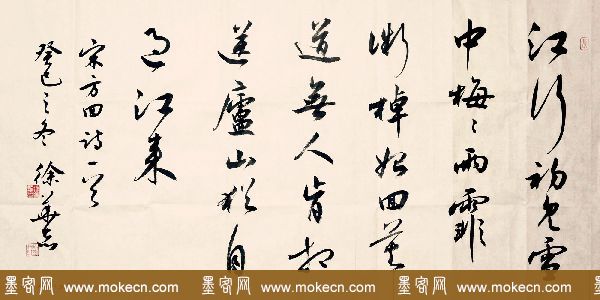 江行初見雪
中梅々雨霏
微棹始回莫
道無人肯相
送廬山猶自
過江來
宋方回诗一首
癸巳之冬 徐
墨客网 www.mokecn.com 墨客网 www.mokecn.com 墨客网 www.mokecn.com